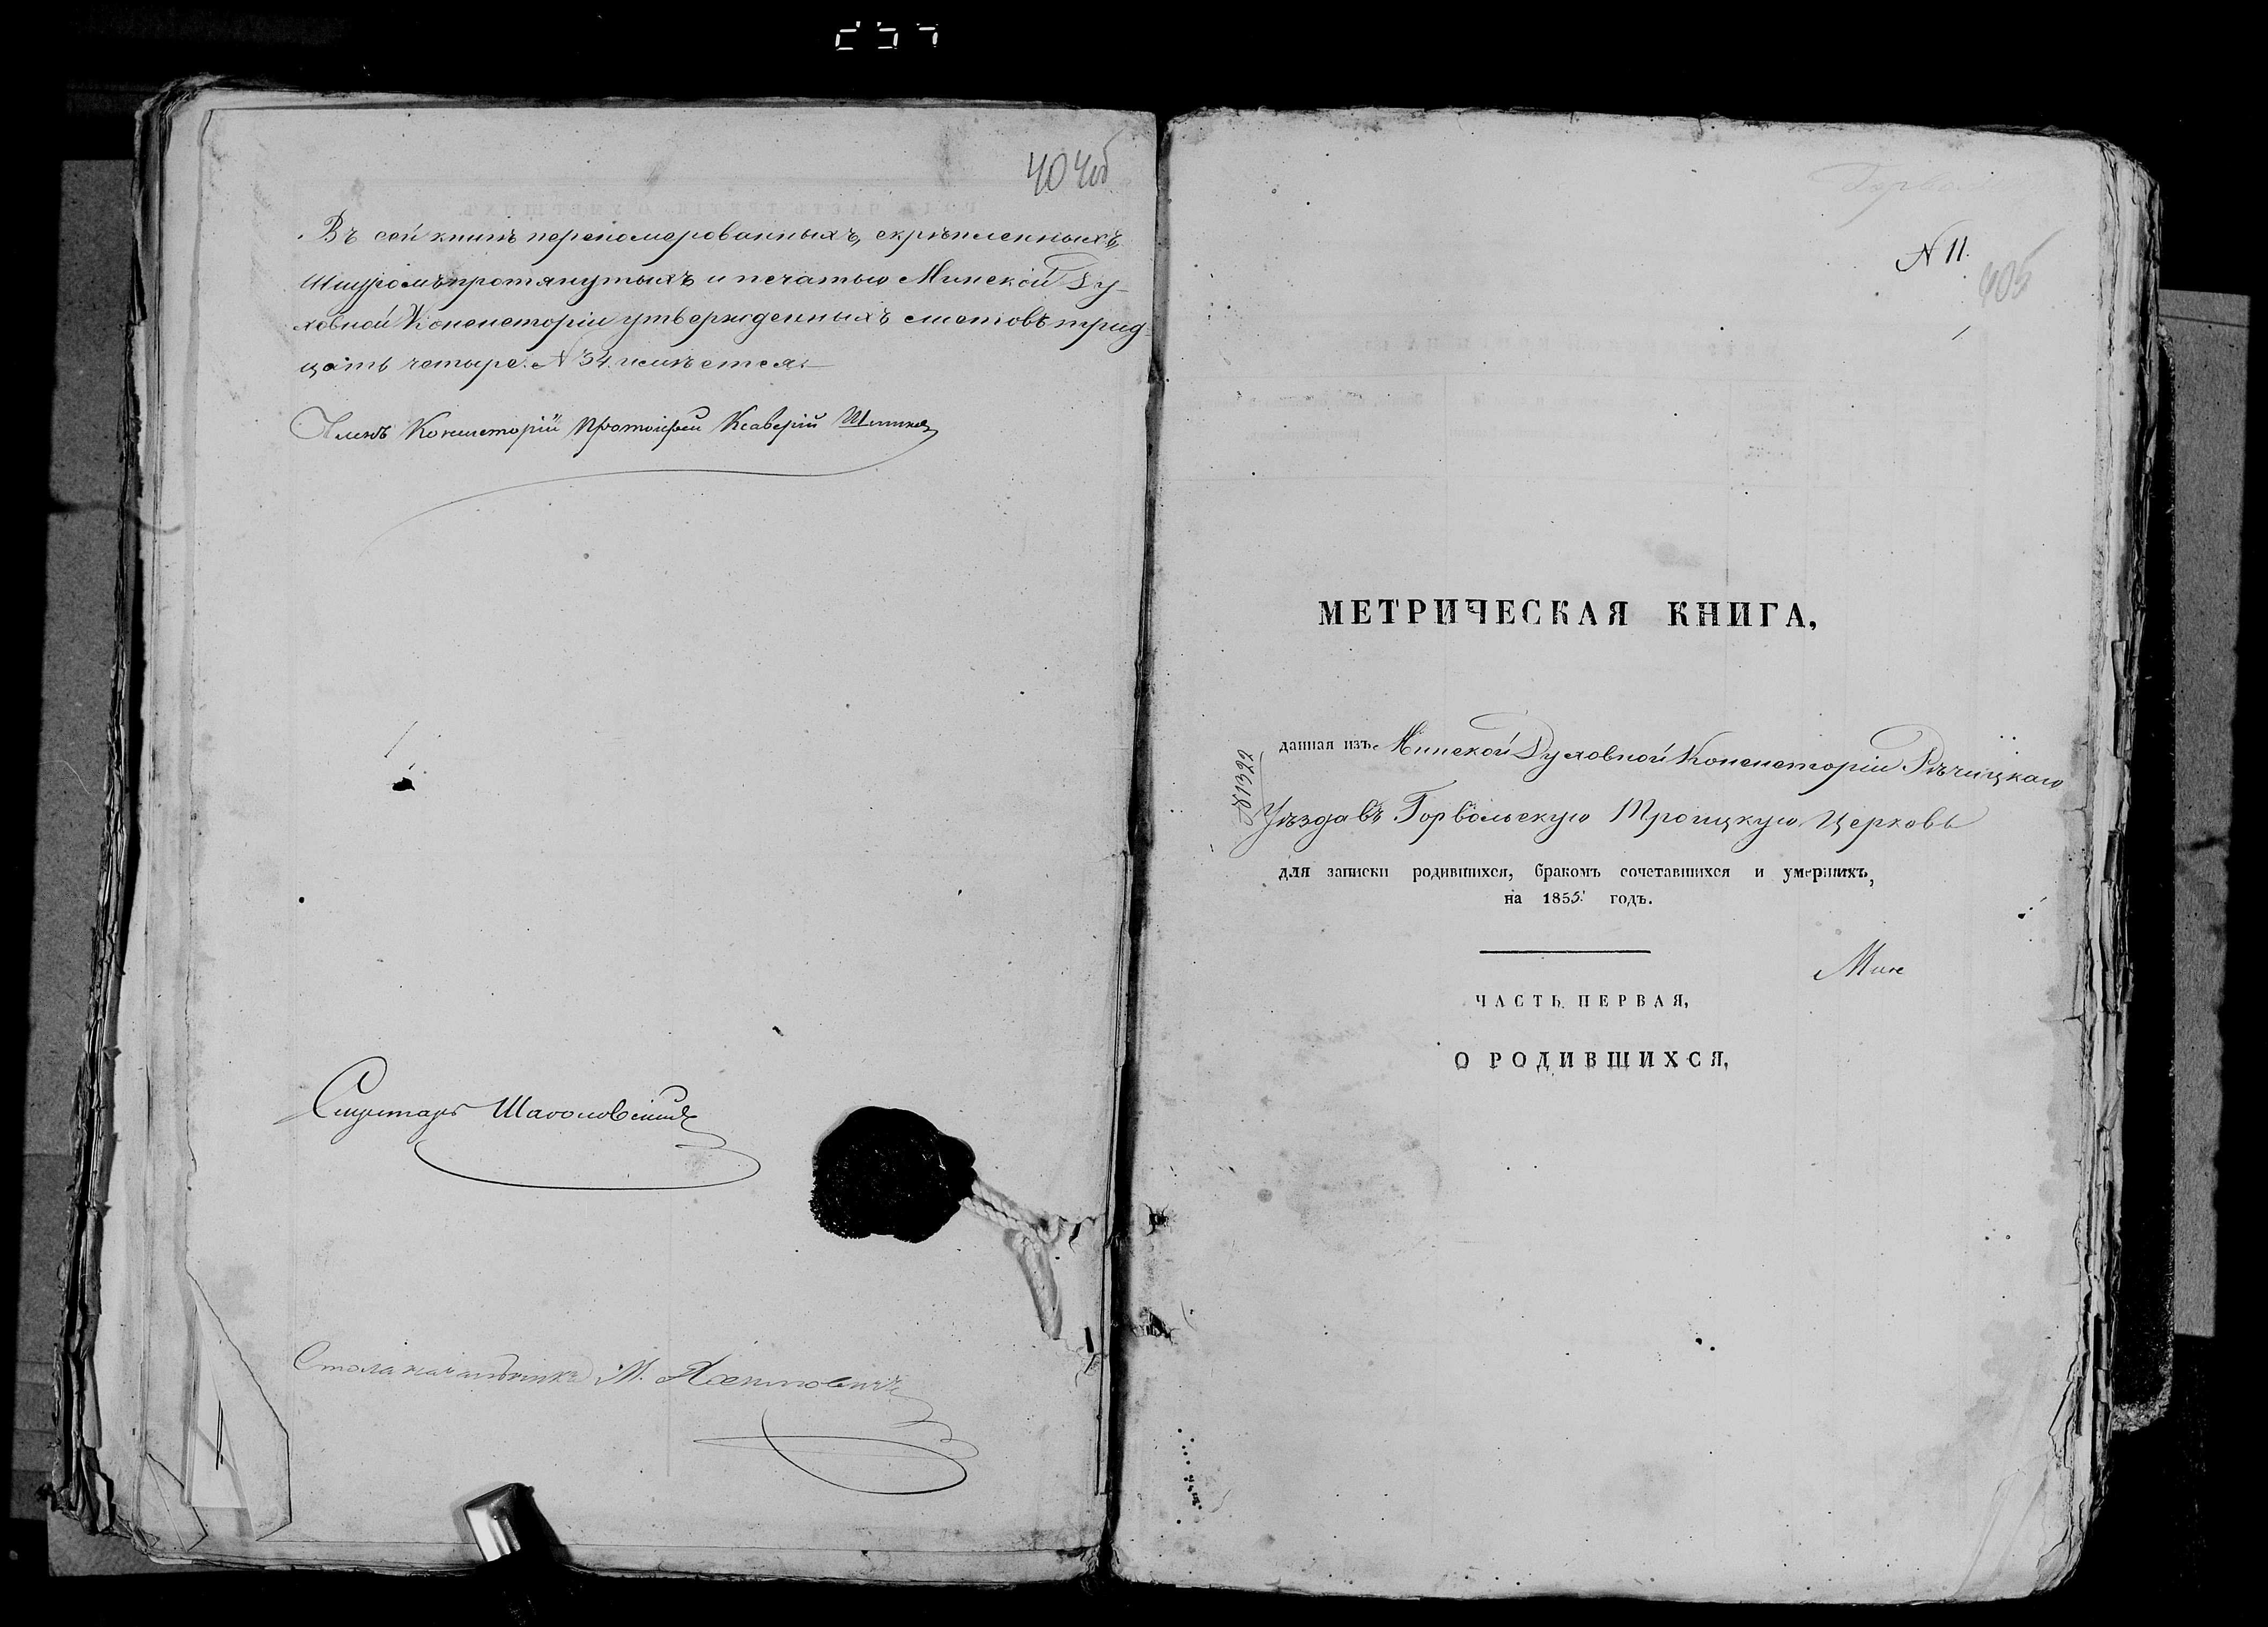 404об
Въ сей книгѣ перепомерованныхъ, скрѣпленныхъ,
Шнуромъ протянутыхъ и печатью Минской Ду-
ховной Консисторіи утвержденныхъ листовъ трид-
цать четыре. N 34. имѣется.
Членъ Консисторіи Протоіерей Ксаверій
Секретарь
Столоначальникъ М.
N 11.
405
МЕТРИЧЕСКАЯ КНИГА,
данная изъ Минской Духовной Консисторіи Рѣчицкаго
Уѣзда въ Горвольскую Троицкую Церковь
для записки родившихся, бракомъ сочетавшихся и умершихъ,
на 1855 годъ.
Мин
ЧАСТЬ ПЕРВАЯ,
О РОДИВШИХСЯ,